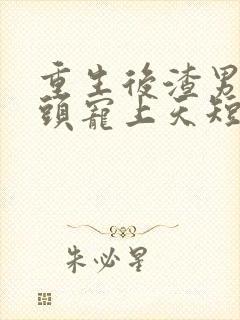 重生後渣男
頭寵上天短
朱必星